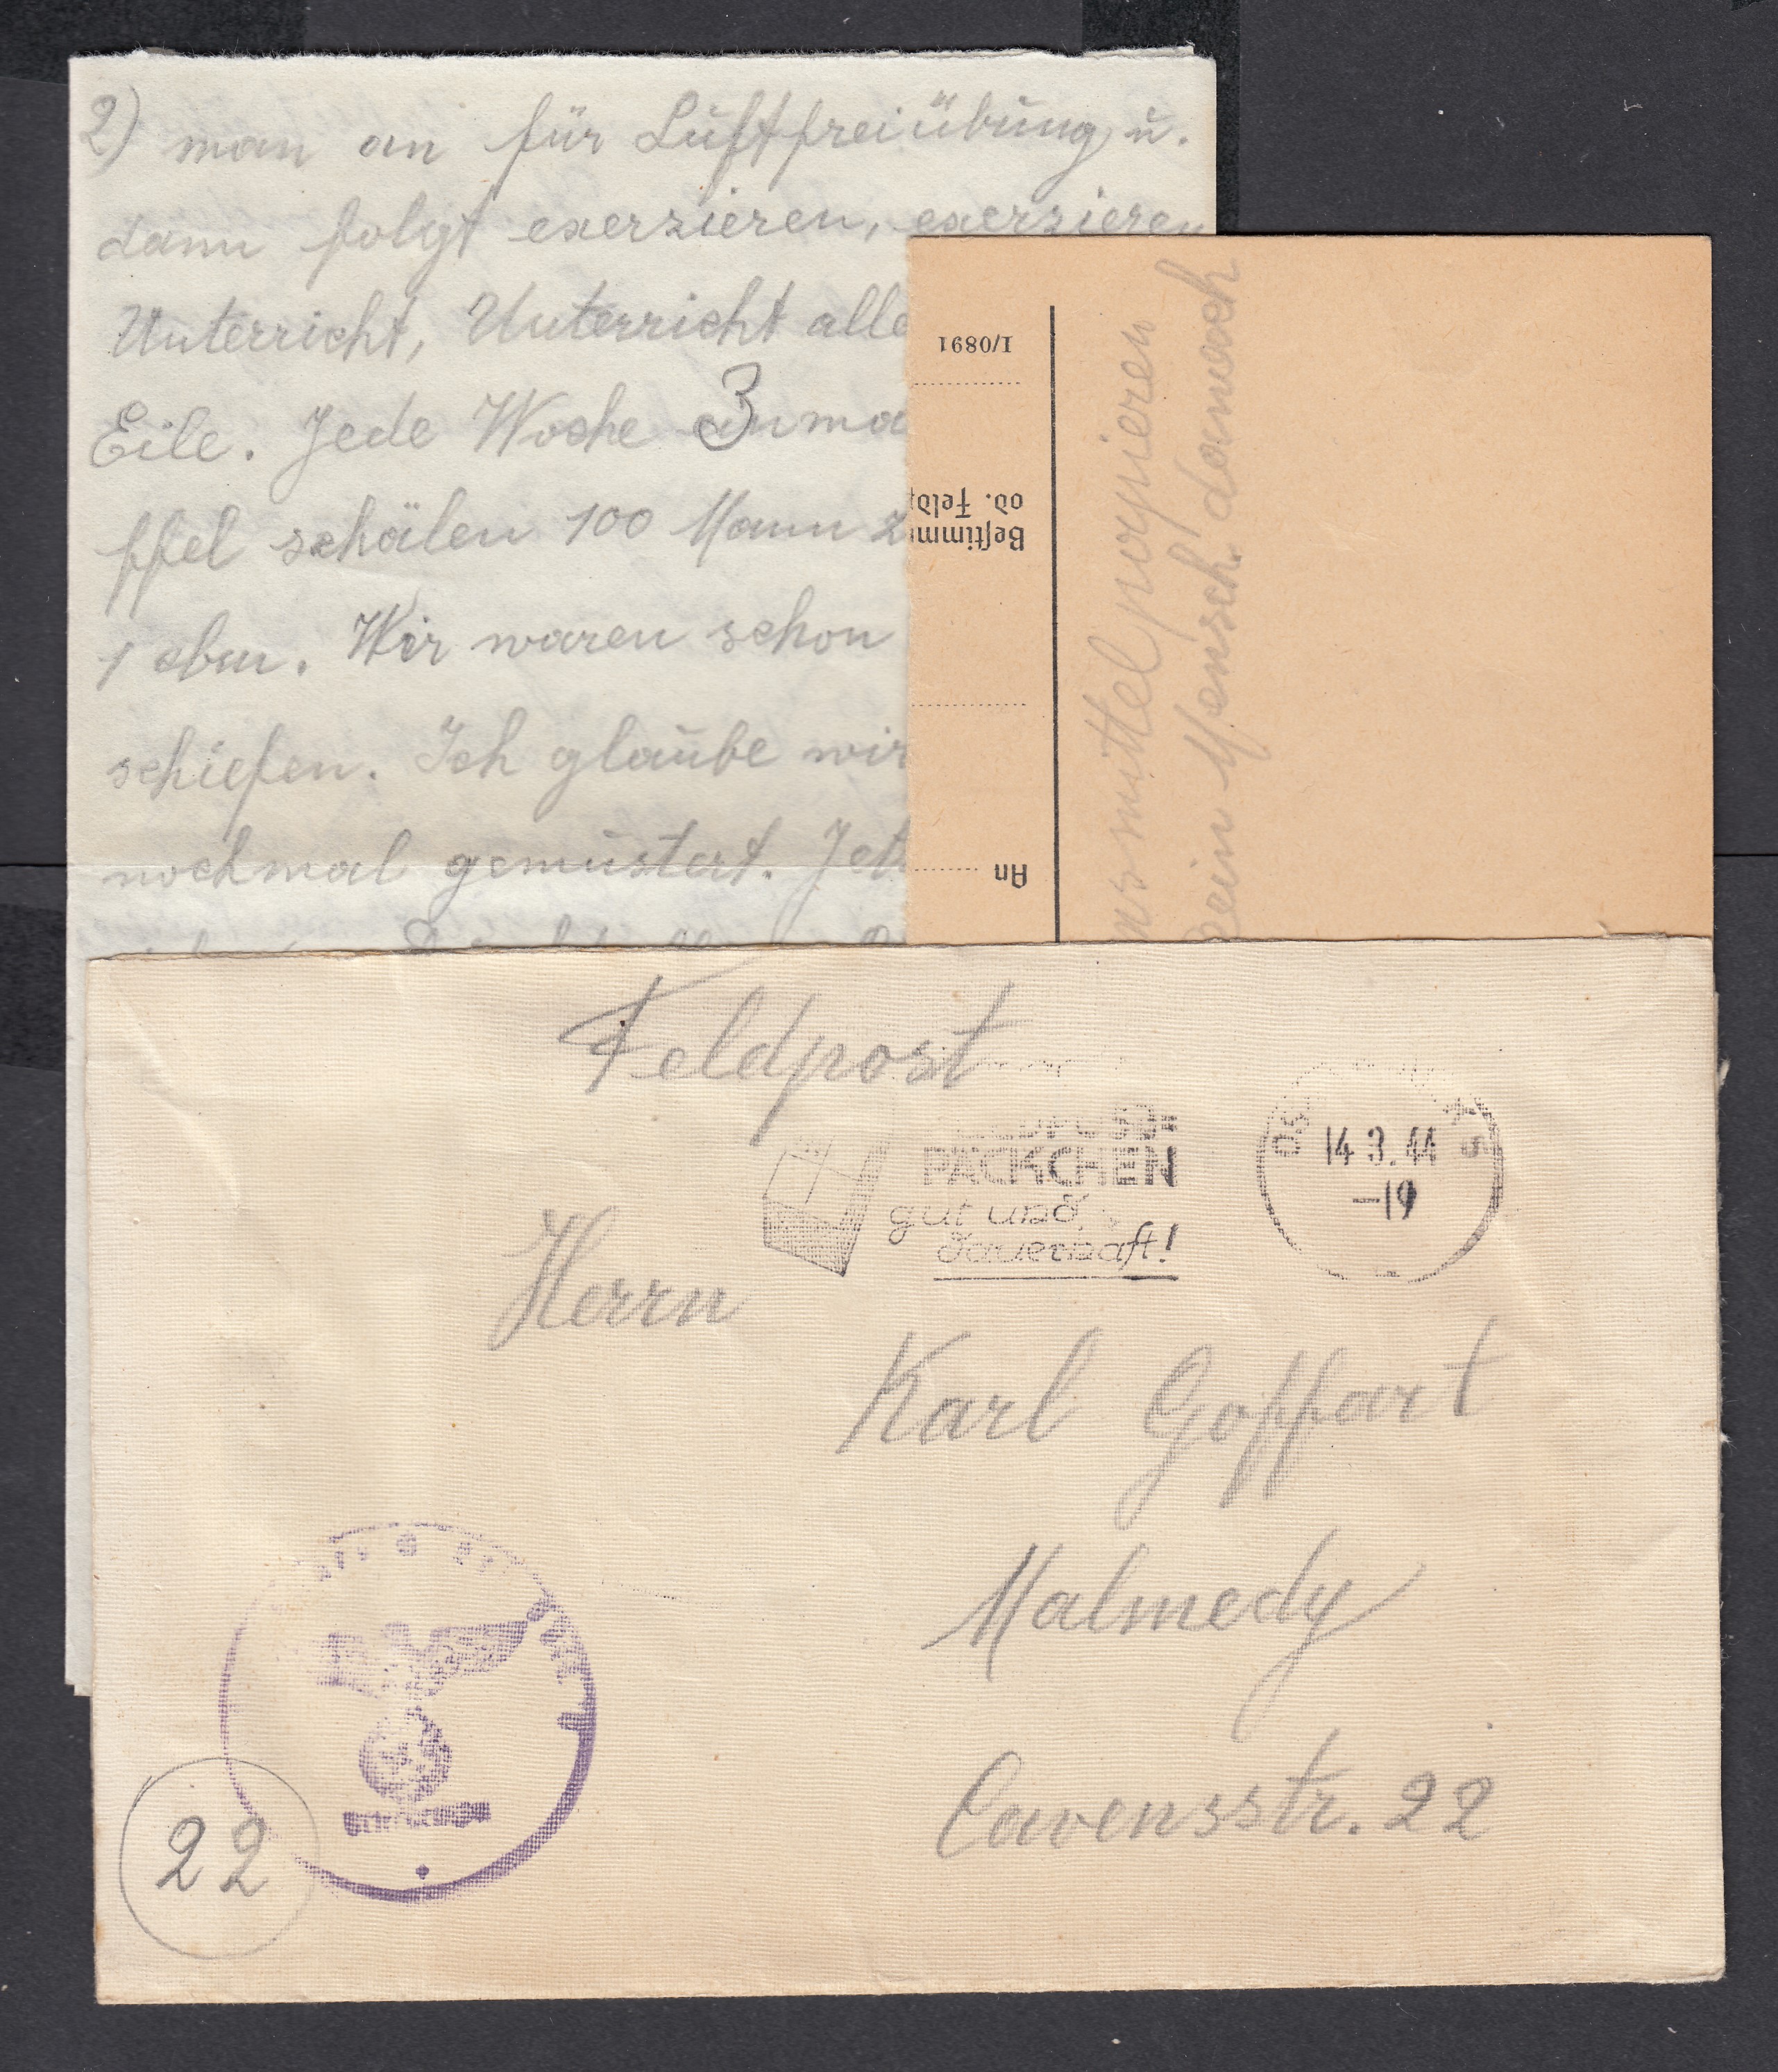 2) man an für Luftfreiübung u.
dann folgt exerzieren, exerzieren
Unterricht, Unterricht alle
Eile. Jede Woche 3 ma
ffel schälen 100 Mann
1 cbm. Wir waren schon
schießen. Ich glaube wir
nochmal gemustert. Jet
I/0891
od. Feld
Bestimm
An
nsmittel
Mensch danach
Feldpost
PÄCKCHEN
gut und
dauerhaft!
14.3.44
-19
Herrn
Karl Goffart
Malmedy
Cavensstr. 22
22